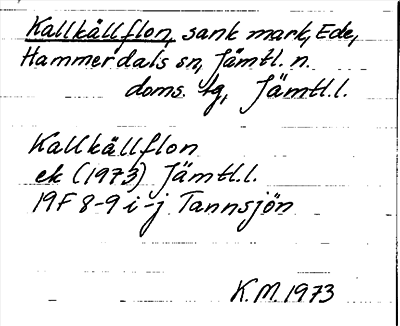 Kallkällflon, sank mark, Ede,
Hammerdals sn, Jämtl. n.
doms. tg, Jämtl. l.
Kallkällflon
ek (1973) Jämtl.l.
19F 8-9 i-j Tannsjön
K.M. 1973